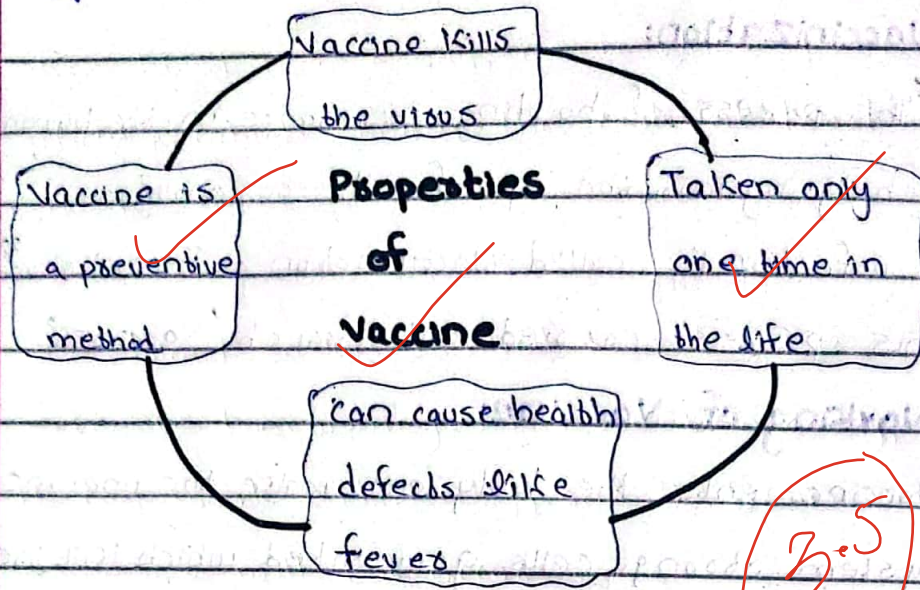 Vaccine kills
the virus
Vaccine is
a preventive
method
Properties
of
Vaccine
Taken only
one time in
the life
can cause health
defects like
fever
3.5